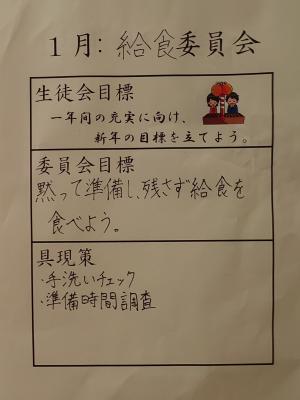 1月:給食委員会
生徒会目標
一年間の充実に向け、
新年の目標を立てよう。
委員会目標
黙って準備し、残さず給食を
食べよう。
具現策
・手洗いチェック
・準備時間調査